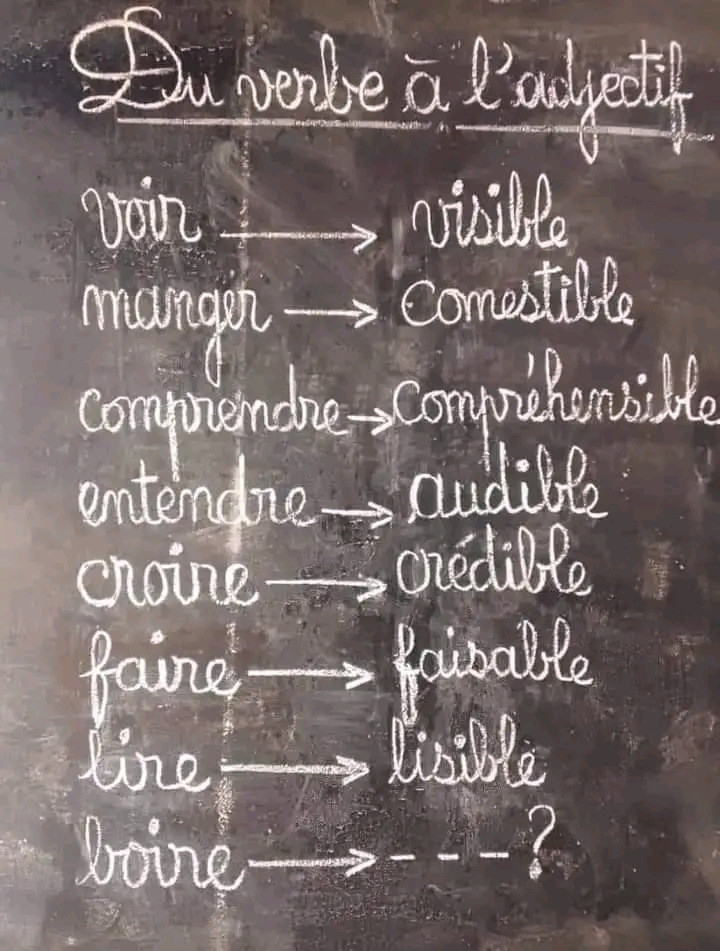 Du verbe à l'adjectif
voir → visible
manger → comestible
comprendre → compréhensible
entendre → audible
croire → crédible
faire → faisable
lire → lisible
boire → - - - ?